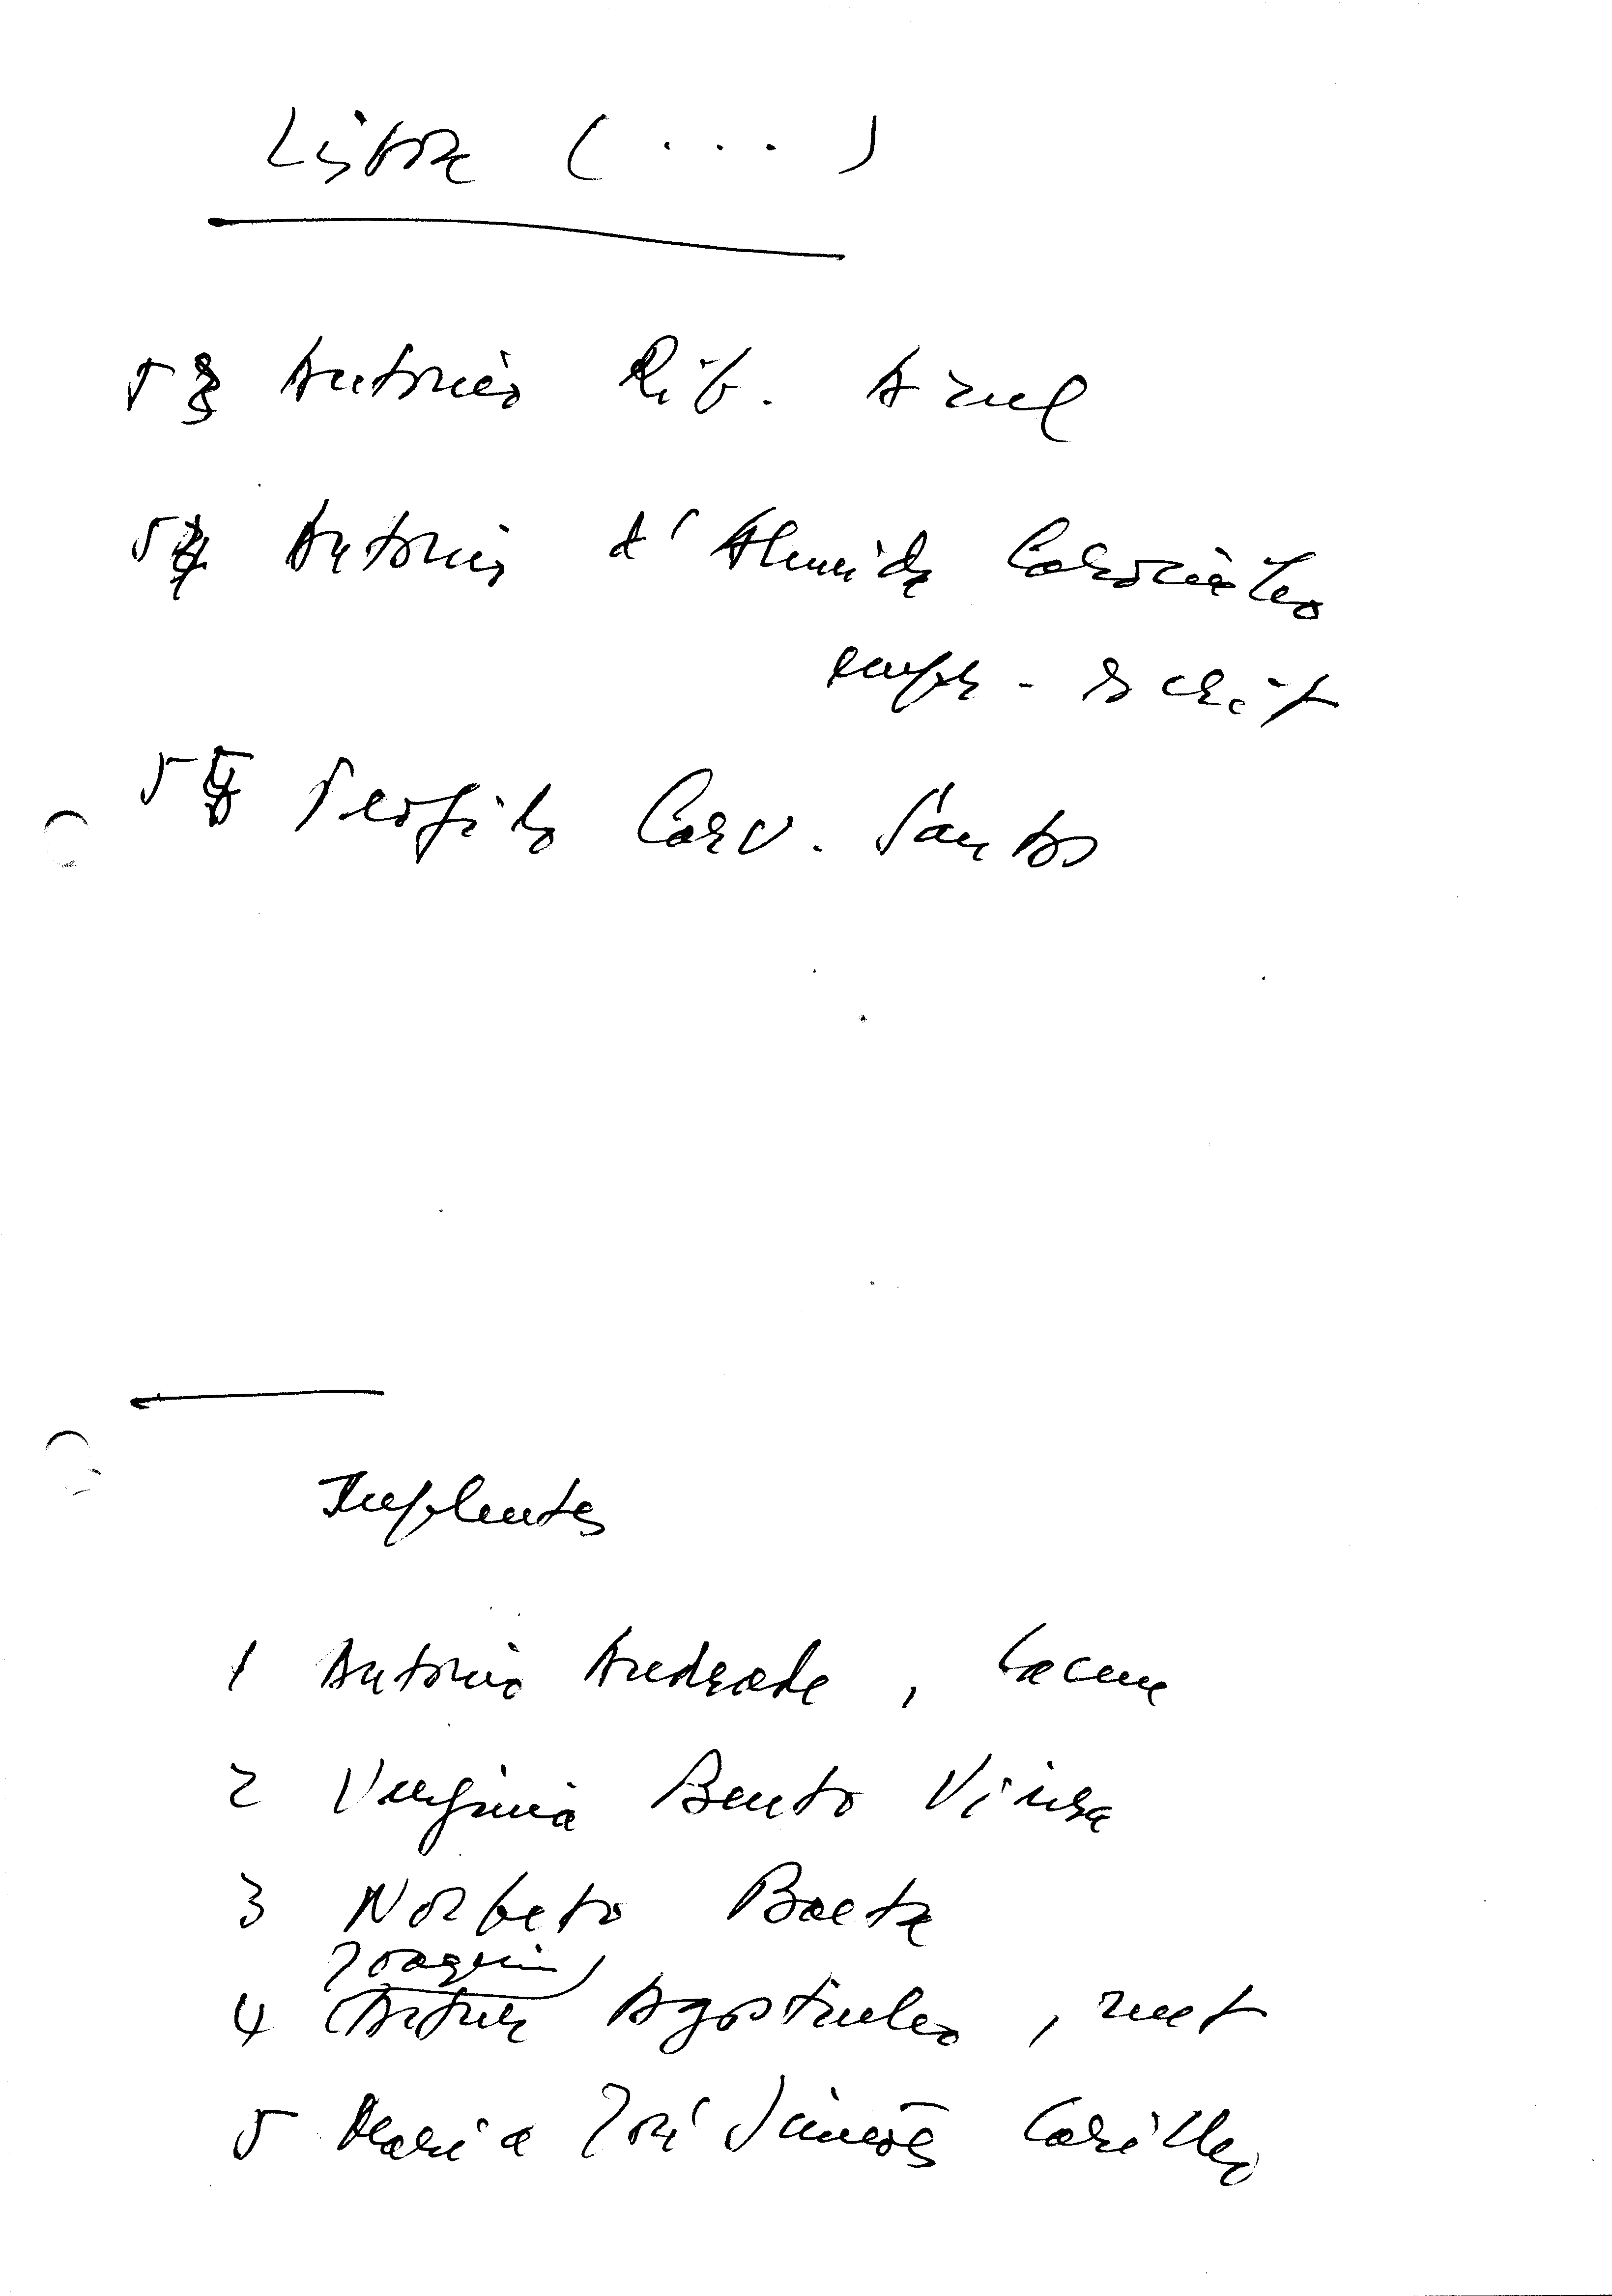 Lista (...)
53 António Rib. Azul
54 António d'Almeida
empr. escrit
55 Teófilo Carv. Santos
Suplentes
1 António Andrade,
2 Virgínia Bento Vieira
3 Norberto
Joaquim
4 (Artur Agostinho, met
5 Maria José Simões